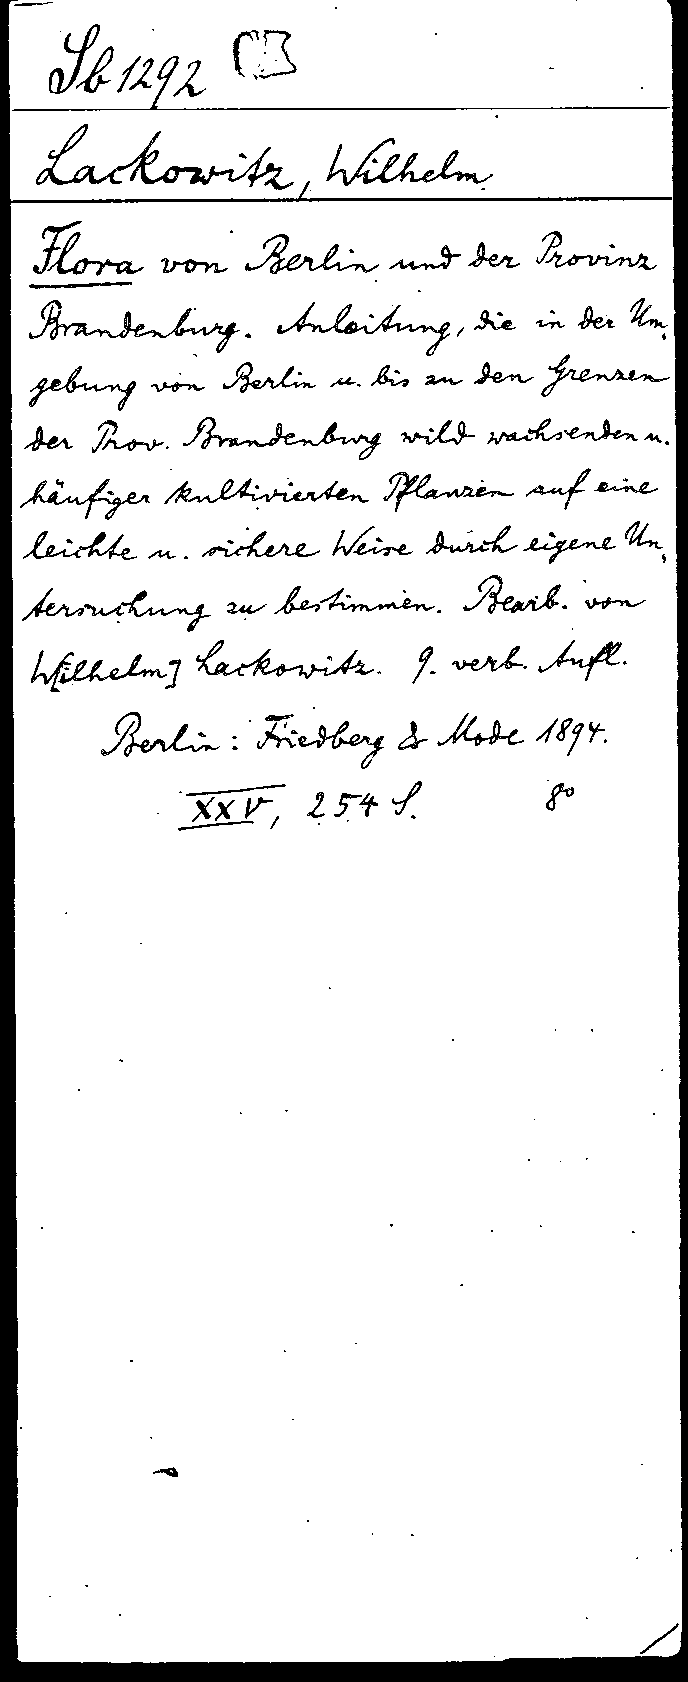 Sb 1292
Lackowitz, Wilhelm
Flora von Berlin und der Provinz
Brandenburg. Anleitung, die in der Um-
gebung von Berlin u. bis zu den Grenzen
der Prov. Brandenburg wild wachsenden u.
häufiger kultivierten Pflanzen auf eine
leichte u. sichere Weise durch eigene Un-
tersuchung zu bestimmen. Bearb. von
W[ilhelm] Lackowitz. 9. verb. Aufl.
Berlin: Friedberg & Mode 1894.
XXV, 254 S. 8°